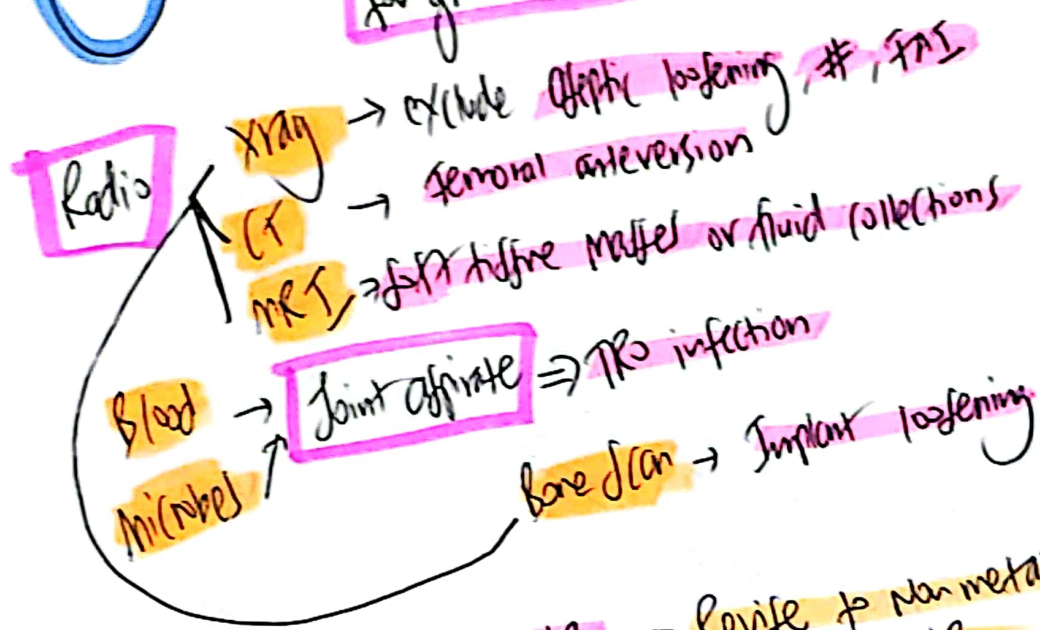 Xray → exclude aseptic loosening, #, FAI
Radio
CT → femoral anteversion
MRI → soft tissue masses or fluid collections
Blood → Joint aspirate ⇒ TRO infection
Microbes
Bone scan → Implant loosening
Revise to Non meta